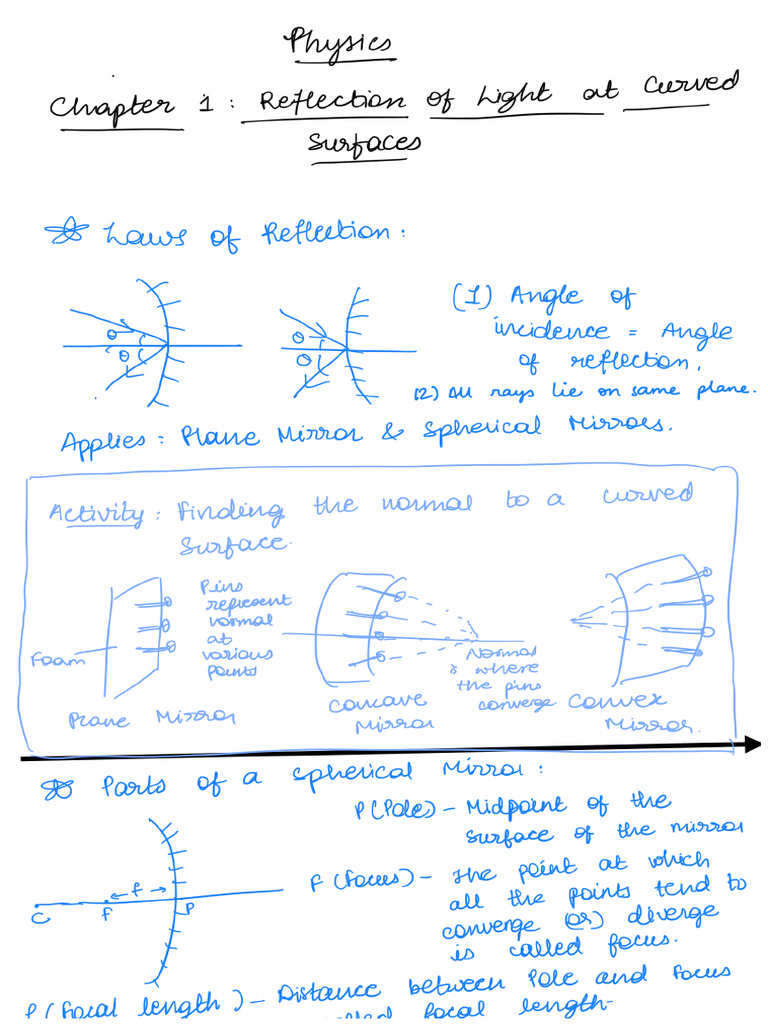 Physics
Chapter 1 : Reflection of Light at Curved
Surfaces
Laws of Reflection :
θ
θ
θ
θ
(1) Angle of
incidence = Angle
of reflection.
(2) All rays lie on same plane.
Applies : Plane Mirror & Spherical Mirrors.
Activity : Finding the normal to a curved
Surface.
Foam
Plane Mirror
Pins
represent
normal
at
various
points
Concave
Mirror
Normal
is where
the pins
converge
Convex
Mirror.
Parts of a Spherical Mirror :
C
F
f
P
P (Pole) – Midpoint of the
surface of the mirror
F (Focus) – The point at which
all the points tend to
converge (or) diverge
is called focus.
f (Focal length) – Distance between Pole and Focus
called focal length.